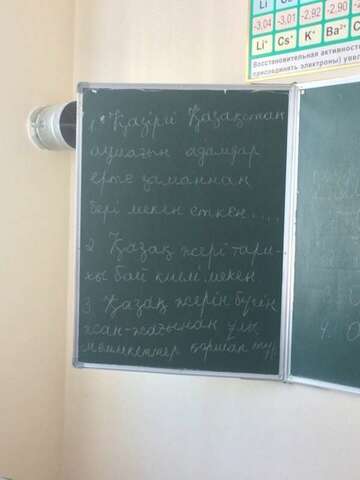 Li Cs
-3,04 -3,01 -2,92 -2,90 -2
Li⁺ Cs⁺ K⁺ Ba²⁺ C
Восстановительная активность
присоединять электроны) увел
1. Қазіргі Қазақстан
аумағын адамдар
ерте заманнан
бері мекен еткен....
2. Қазақ жері тари-
хы бай мекен
3. Қазақ жерін бүгін
жан-жағынан ұлы
мемлекеттер қоршап тұр
4. О